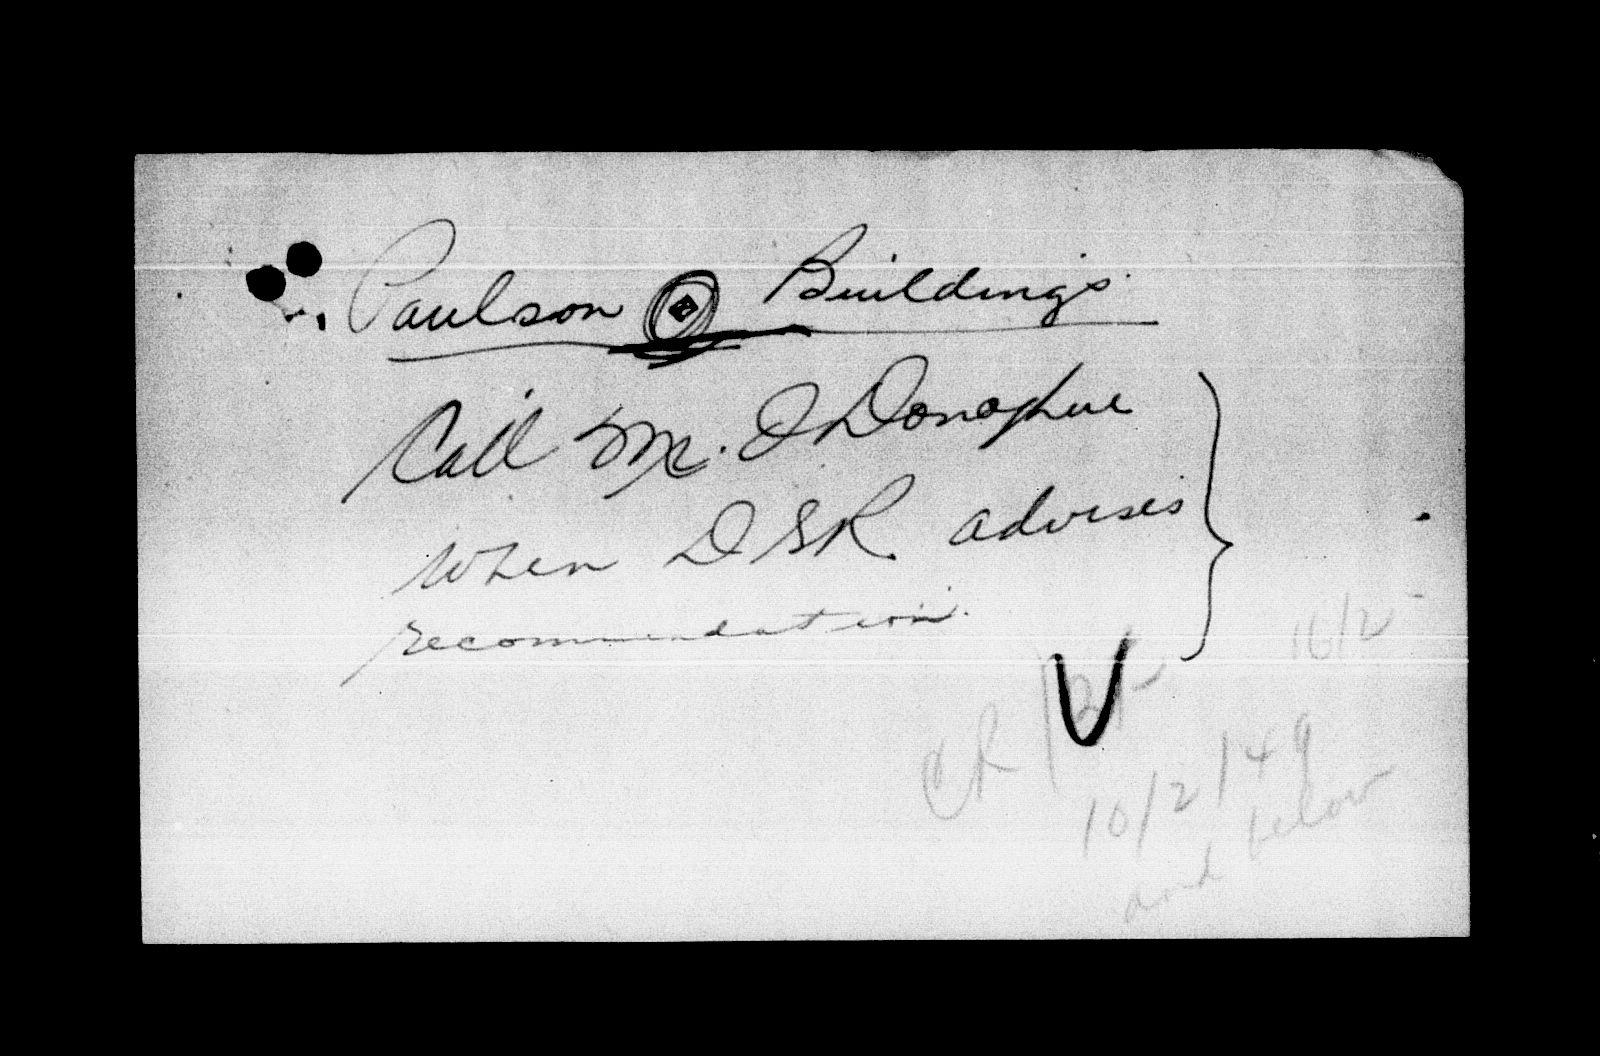 Paulson Buildings
Call Mr. O'Donoghue
when DSR advises
recommendation.
16/2
CR
10/2/49
and below